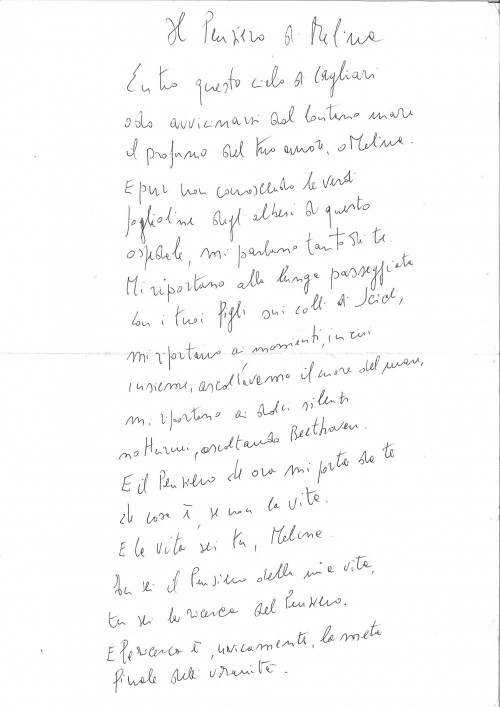 Il Pensiero di Melina
Entro questo cielo di Cagliari
odo avvicinarsi dal lontano mare
il profumo del tuo amore, o Melina.
E pur non conoscendo le verdi
foglioline degli alberi di questo
ospedale, mi parlano tanto di te.
Mi riportano alla lunga passeggiata
con i tuoi figli sui colli di Scicli,
mi riportano ai momenti, in cui
insieme, ascoltavamo il cuore del mare,
mi riportano ai dolci silenzi
notturni, ascoltando Beethoven.
E il Pensiero che ora mi porta da te
che cosa è, se non la vita.
E la vita sei tu, Melina.
Tu sei il Pensiero della mia vita,
tu sei la ricerca del Pensiero.
E la ricerca è, unicamente, la meta
finale dell'umanità.